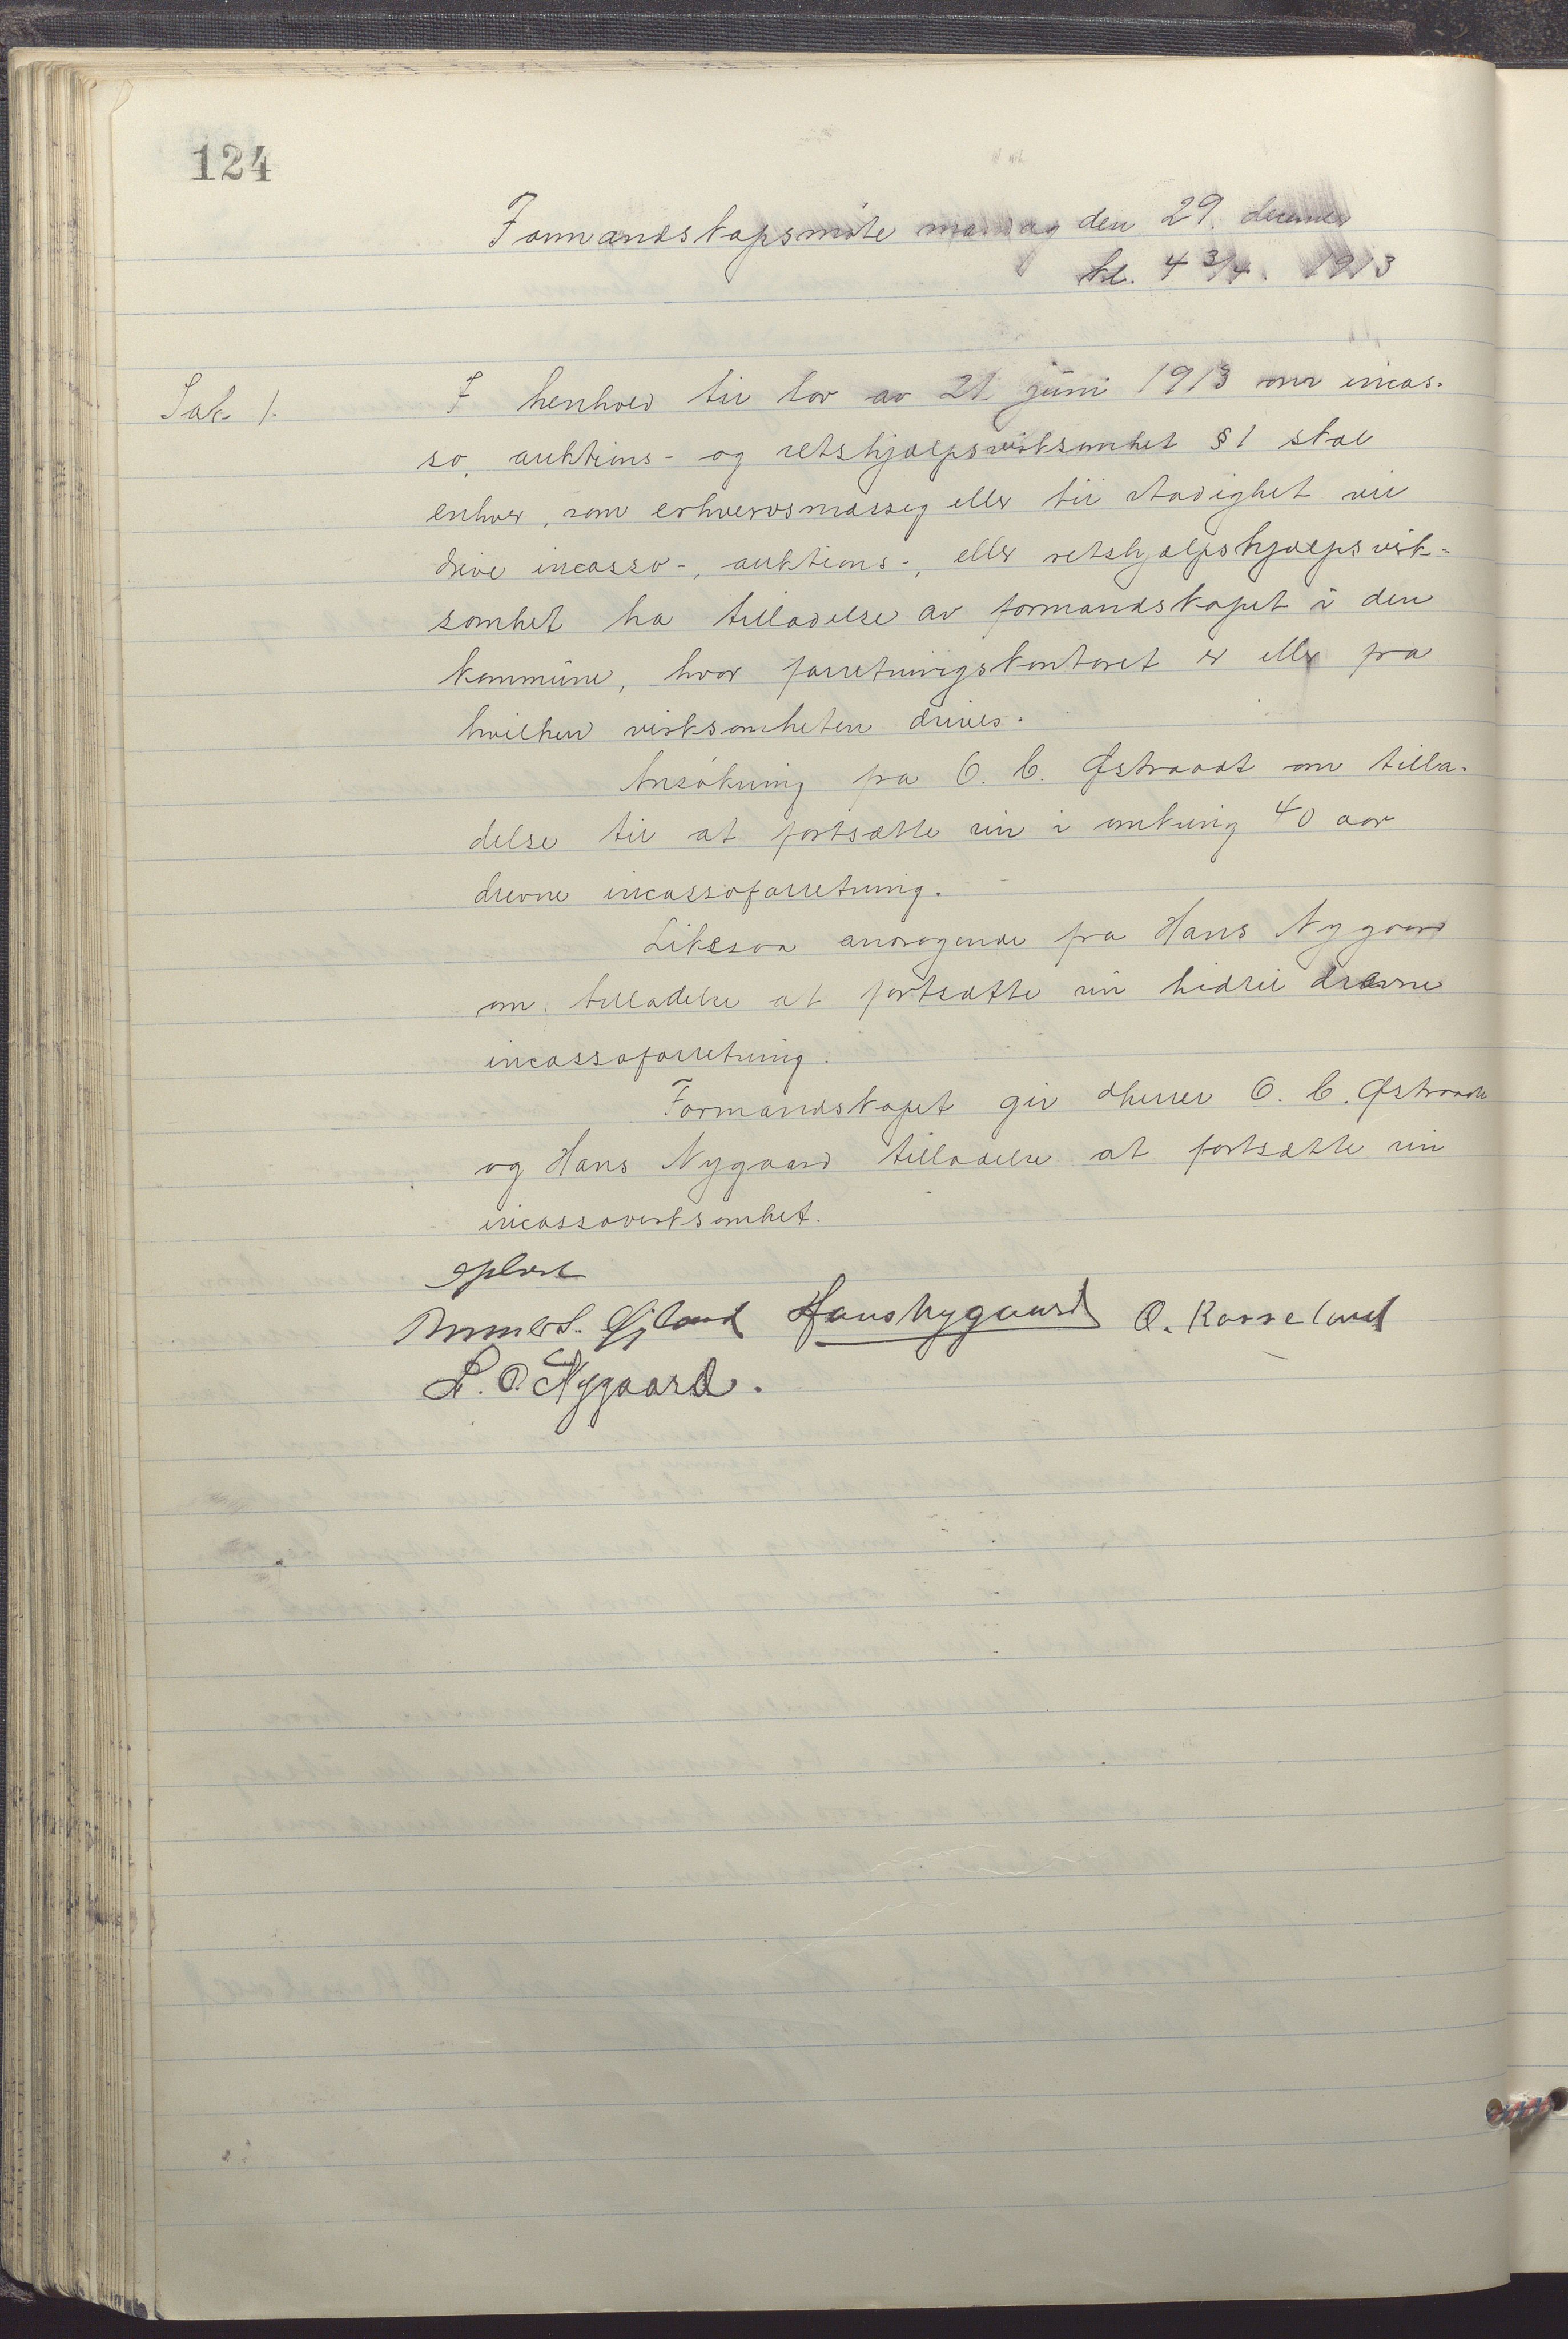 124
Formandskapsmøte mandag den 29. december
kl. 4 3/4. 1913
Sak 1.
I henhold til lov av 21 juni 1913 om incas-
so, auktions- og retshjælpsvirksomhet § 1 skal
enhver, som erhvervsmæssig eller til stadighet vil
drive incasso-, auktions-, eller retshjælpshjælpsvirk-
somhet ha tilladelse av formandskapet i den
kommune, hvor forretningskontoret er eller fra
hvilken virksomheten drives.
Ansøkning fra O. C. Østraadt om tilla-
delse til at fortsætte sin i omkring 40 aar
drevne incassoforretning.
Likesaa andragende fra Hans Nygaard
om tilladelse at fortsætte sin hidtil drevne
incassoforretning.
Formandskapet gir dherrer O. C. Østraadt
og Hans Nygaard tilladelse at fortsætte sin
incassovirksomhet.
Oplæst
Øgland Hans Nygaard O. Kosseland
L. O. Nygaard.